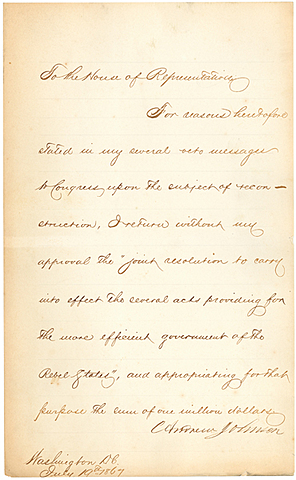 To the House of Representatives
For reasons heretofore
stated in my several veto messages
to Congress upon the subject of recon-
struction, I return without my
approval the "joint resolution to carry
into effect the several acts providing for
the more efficient government of the
Rebel States", and appropriating for that
purpose the sum of one million dollars
Andrew Johnson
Washington D.C.
July 19th 1867